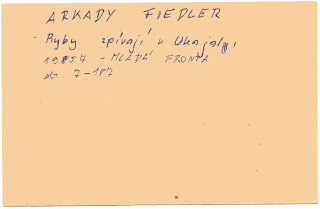 ARKADY FIEDLER
Ryby zpívají v Ukajali
1957 - MLADÁ FRONTA
str. 7-187